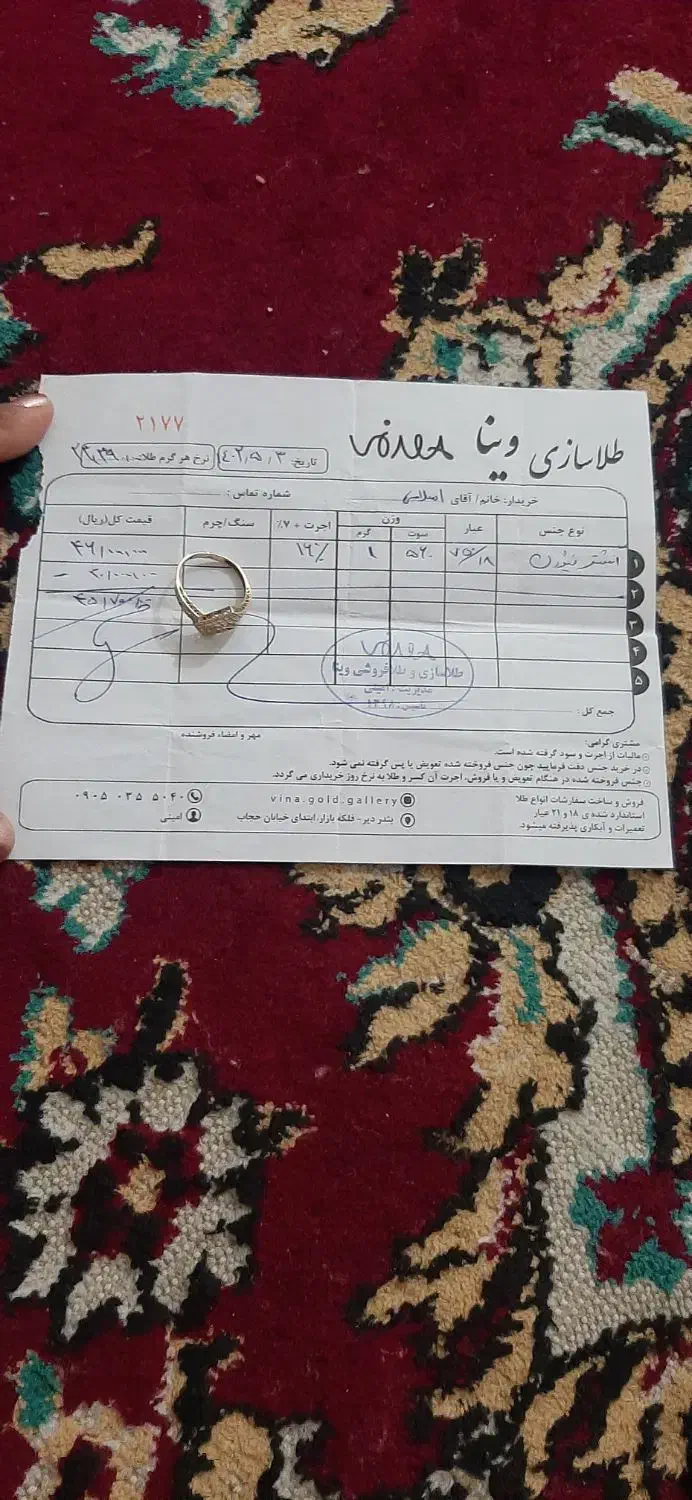 ۲۱۷۷
طلاسازی وینا
تاریخ ۴۰۲/۵/۳
نرخ هر گرم طلا:
خریدار: خانم/ آقای
شماره تماس:
نوع جنس عیار وزن اجرت + ۷٪ سنگ/چرم قیمت کل(ریال)
سوت گرم
۱ ۷۵۰/۱۸ ۵۶۰ ۱ ۱۶٪ ۴۶/۰۰۰/۰۰۰
۲
۳
۴
۵
طلاسازی و طلافروشی وینا
مدیریت: امینی
جمع کل:
مشتری گرامی:
مهر و امضاء فروشنده
مالیات از اجرت و سود گرفته شده است.
در خرید جنس دقت فرمایید چون جنس فروخته شده تعویض یا پس گرفته نمی شود.
جنس فروخته شده در هنگام تعویض و یا فروش، اجرت آن کسر و طلا به نرخ روز خریداری می گردد.
فروش و ساخت سفارشات انواع طلا
استاندارد شده ی ۱۸ و ۲۱ عیار
تعمیرات و آبکاری پذیرفته میشود
vina.gold.gallery
بندر دیر- فلکه بازار، ابتدای خیابان حجاب
۰۹۰۵ ۰۳۵ ۵۰۴۰
امینی